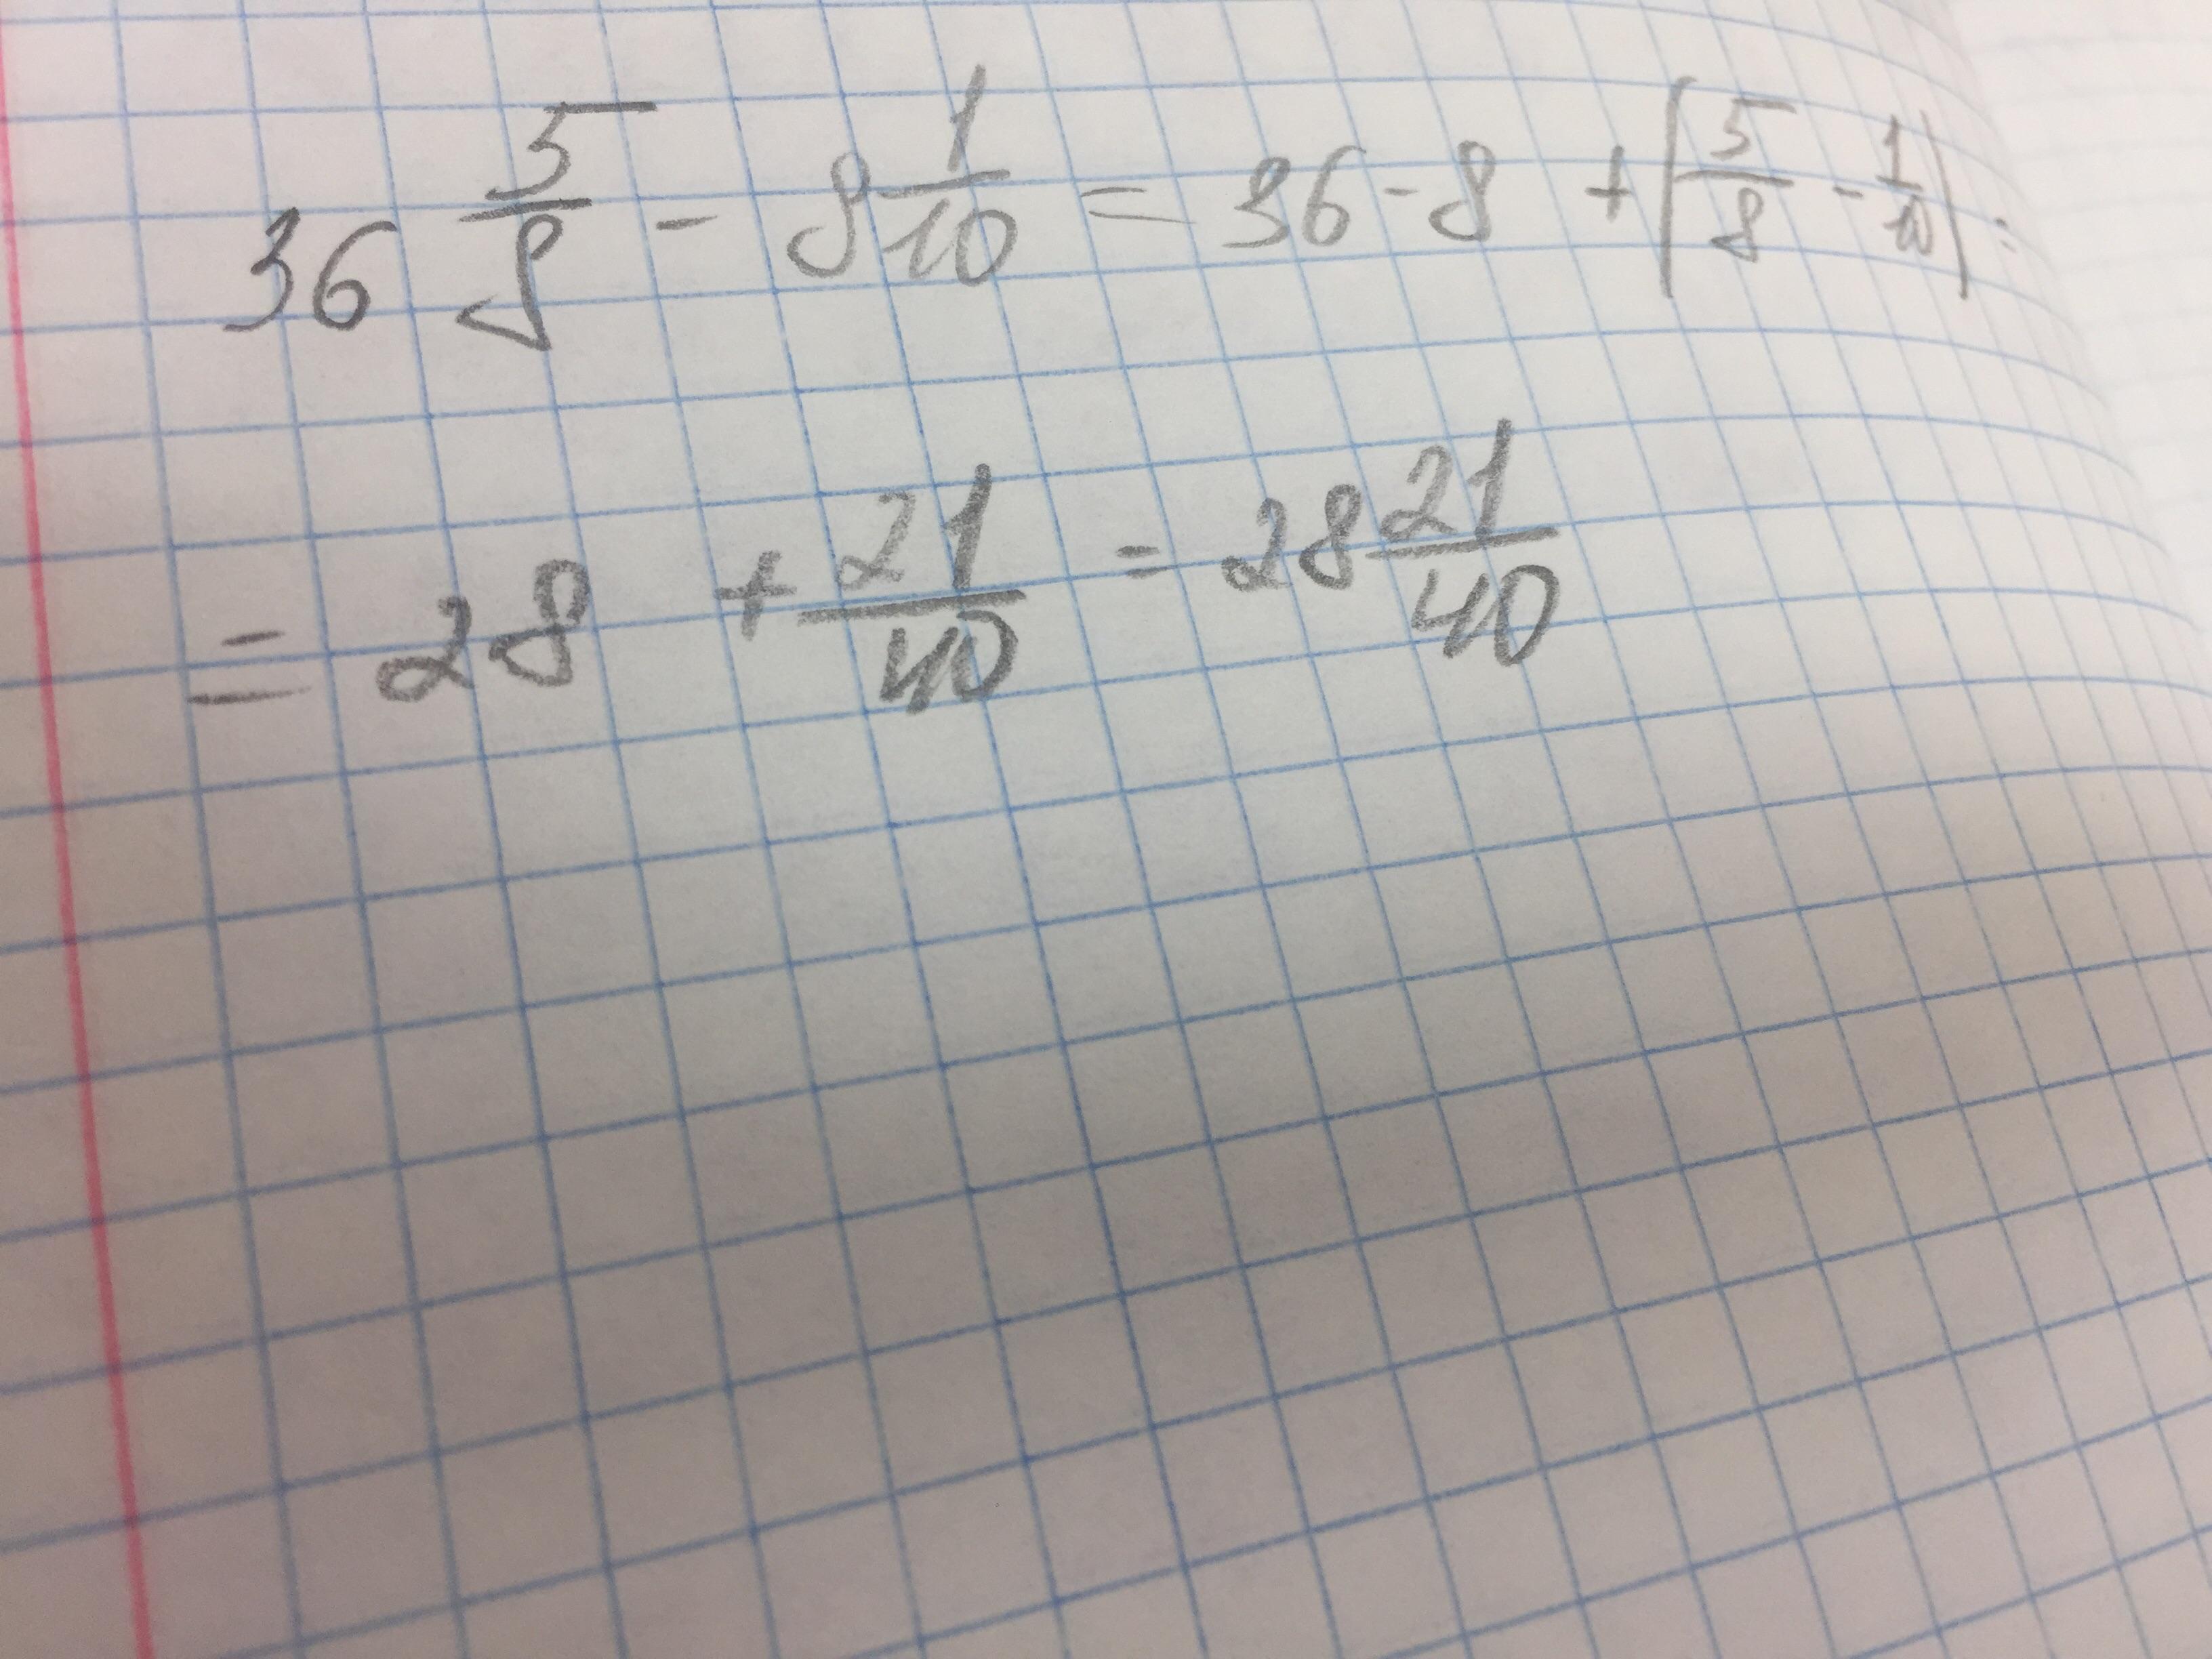 36 5/8 - 8 1/10 = 36 - 8 + (5/8 - 1/10) =
= 28 + 21/40 = 28 21/40